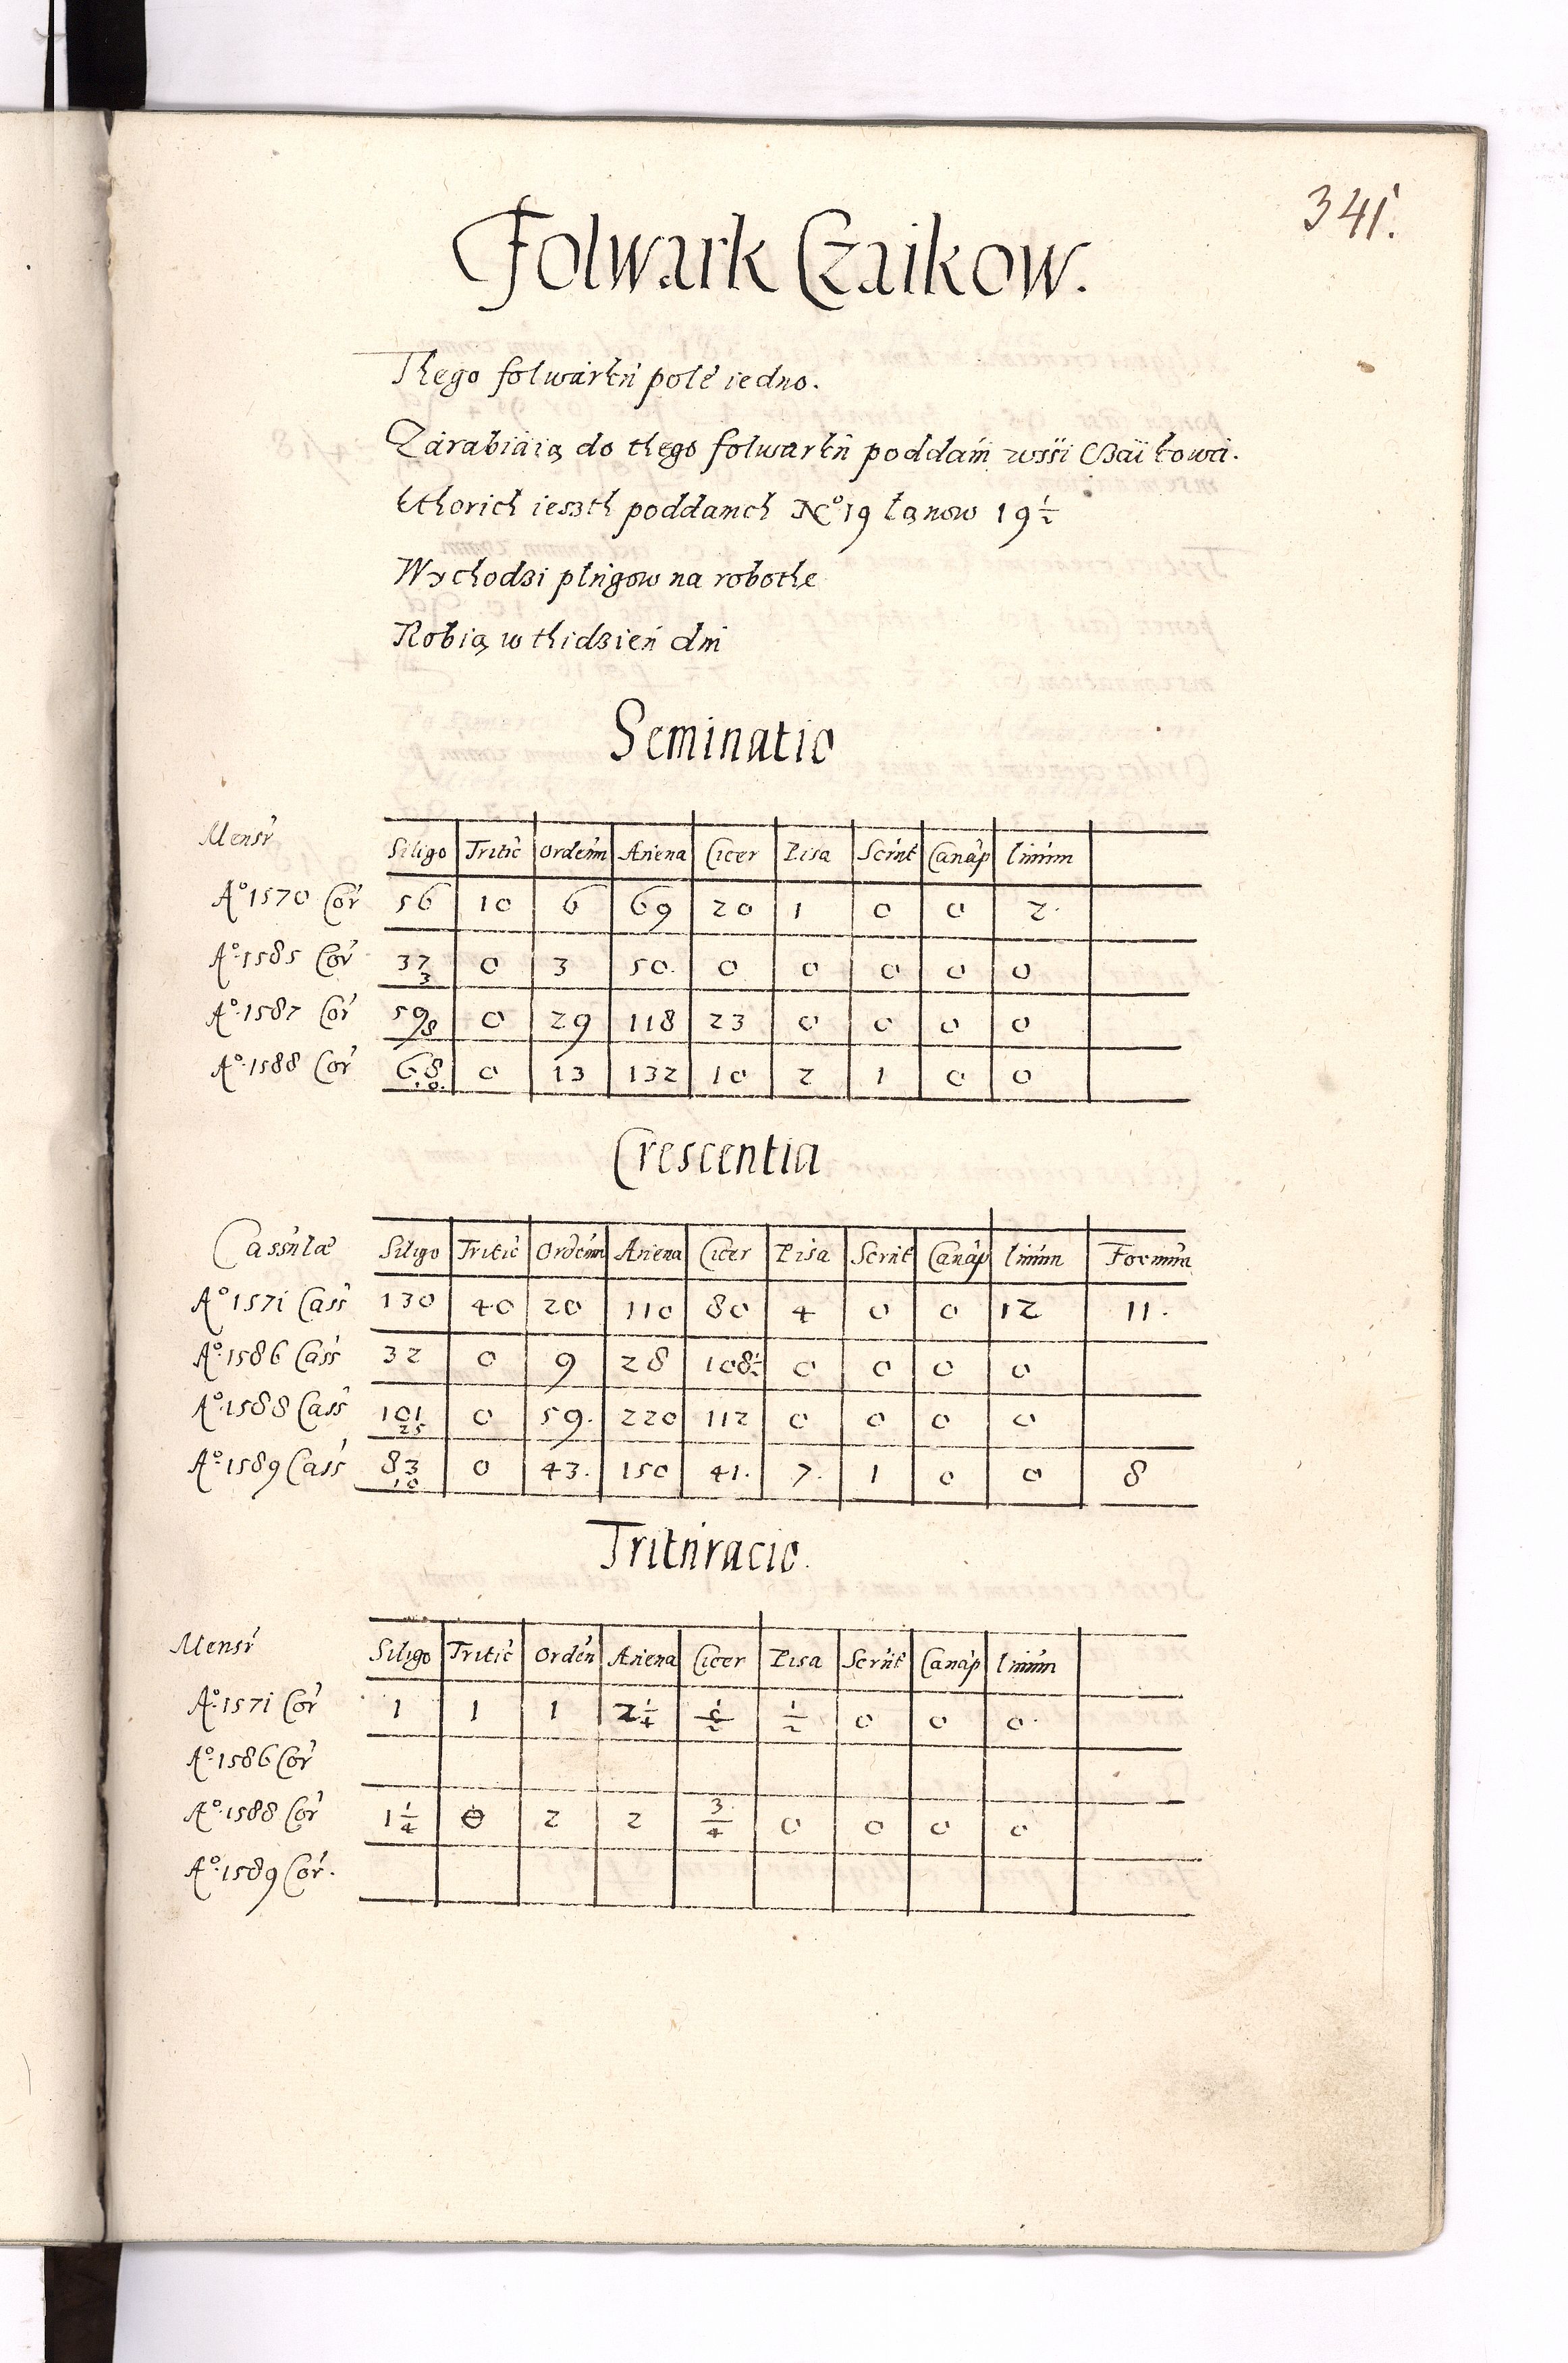 341.
Folwark Czaikow.
Thego folwarku polé iedno.
Zarabiaią do thego folwarku poddani wssi Czaikowa.
kthorich ieszth poddanch No 19 łanow 19 1/2
Wychodzi plugow na robothe
Robią w thidzień dni
Seminatio
Mensr Siligo Tritic Ordeum Auena Cicer Pisa Scrut Canap linum
Ao 1570 Cor 56 10 6 69 20 1 0 0 2.
Ao. 1585 Cor 37 3 0 3 50. 0 0 0 0 0
Ao. 1587 Cor 59 8 0 29 118 23 0 0 0 0
Ao. 1588 Cor 68 10. 0 13 132 10 2 1 0 0
Crescentia
Cassulæ Siligo Tritic Ordeum Auena Cicer Pisa Scrut Canap linum Foenum
Ao 1571 Cass 130 40 20 110 80 4 0 0 12 11.
Ao. 1586 Cass 32 0 9 28 108 1/2 0 0 0 0
Ao. 1588 Cass 101 25 0 59. 220 112 0 0 0 0
Ao. 1589 Cass 83 10 0 43. 150 41. 7. 1 0 0 8
Trituracio.
Mensr Siligo Tritic Ordeu Auena Cicer Pisa Scrut Canap linum
Ao. 1571 Cor 1 1 1 2 1/4 1/2 1/2 0 0 0.
Ao. 1586 Cor
Ao. 1588 Cor 1 1/4 0 2 2 3/4 0 0 0 0
Ao. 1589 Cor.